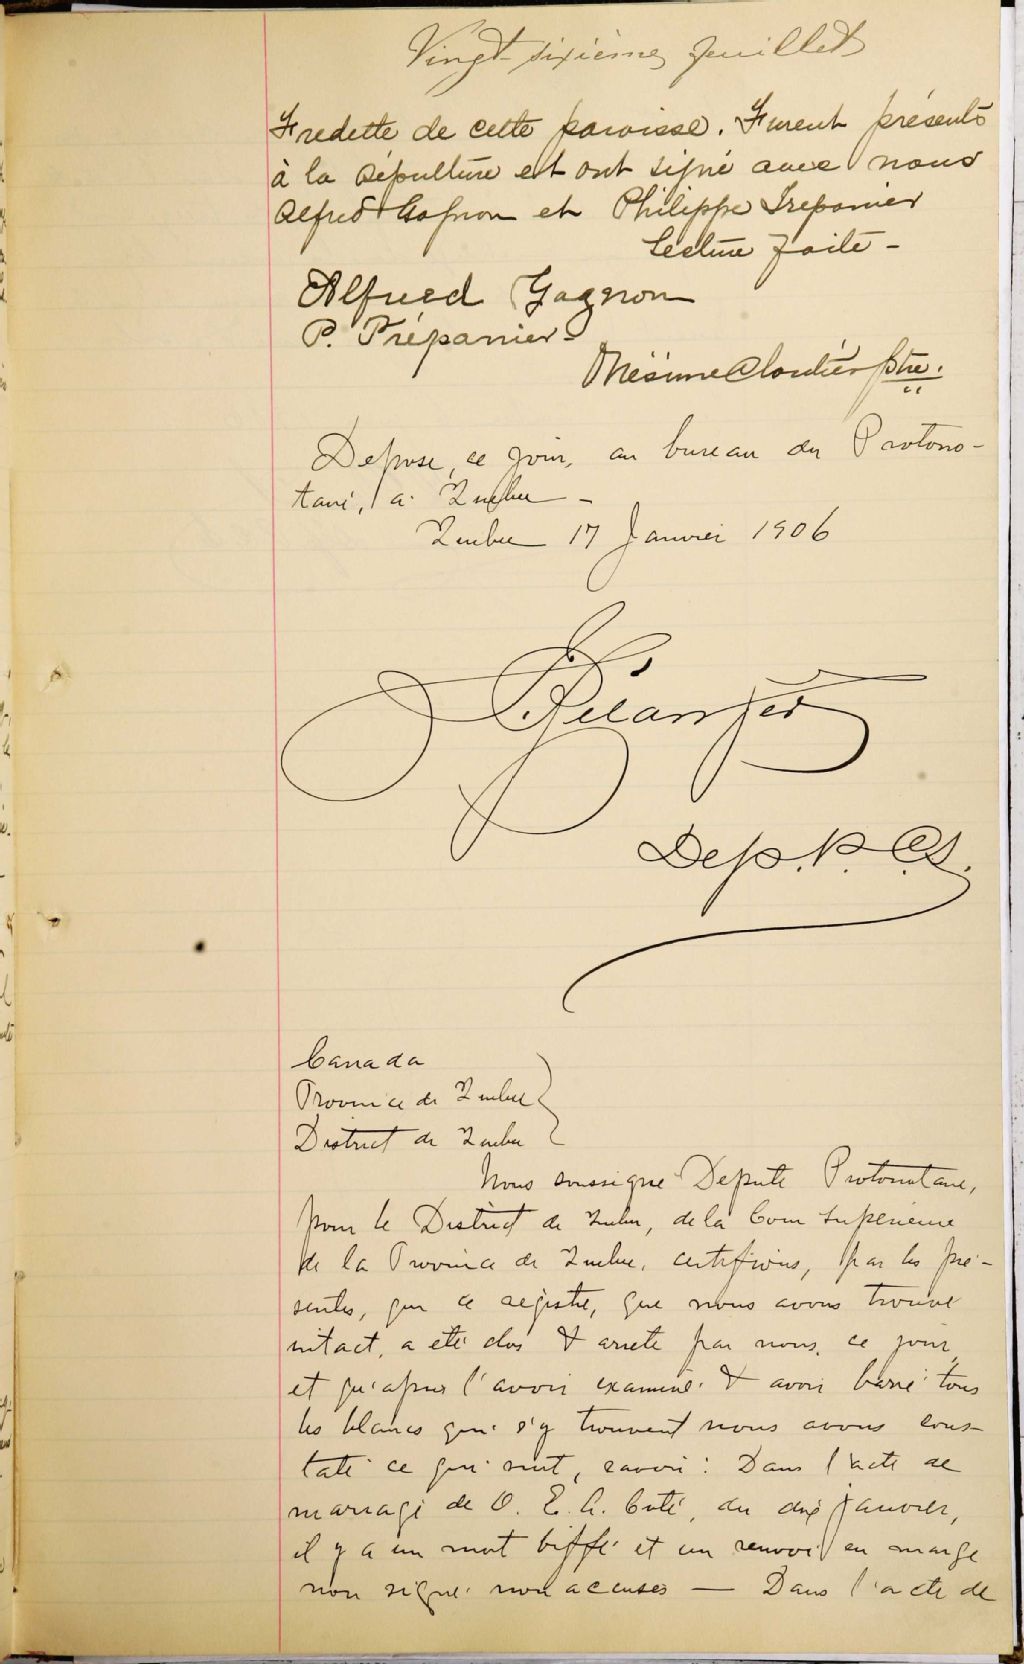 Vingt-sixième feuillet
Fredette de cette paroisse. Furent présents
à la sépulture et ont signé avec nous
Alfred Gagnon et Philippe Trepanier
Lecture faite -
Alfred Gagnon
P. Trépanier -
Onésime Cloutier ptre.
Depose, ce jour, au bureau du Protono-
taire, a Quebec -
Quebec 17 Janvier 1906
Belanger
Dep. P. C.S.
Canada
Province de Quebec
District de Quebec
Nous soussigne Depute Protonotaire,
pour le District de Quebec, de la Cour Superieure
de la Province de Quebec, certifions, par les pre-
sentes, que ce registre, que nous avons trouvé
intact, a eté clos & arreté par nous, ce jour,
et qu'apres l'avoir examiné & avoir barré tous
les blancs qui s'y trouvent nous avons cons-
taté ce qui suit, savoir: Dans l'acte de
mariage de O. E. A. Coté, du dix janvier,
il y a un mot biffé et un renvoi en marge
non signé non accuses — Dans l'acte de